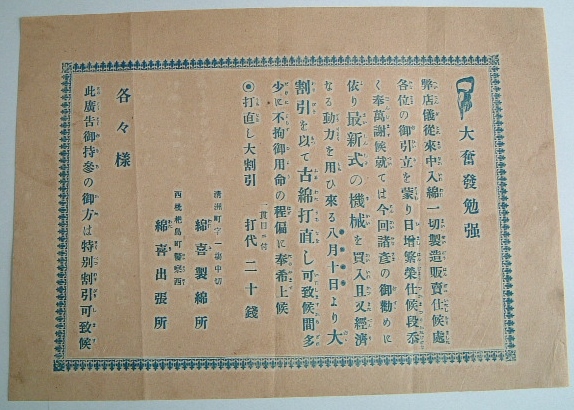 大奮發勉强
弊店儀從來中入綿一切製造販賣仕候處
各位の御引立を蒙り日增繁榮仕候段忝
く奉萬謝候就ては今回諸彥の御勸めに
依り最新式の機械を買入且又經濟
なる動力を用ひ來る八月十日より大
割引を以て古綿打直し可致候間多
少に不拘御用命の程偏に奉希上候
◎打直し大割引 一貫目ニ付 打代二十錢
淸洲町字一塲中切
綿喜製綿所
西枇杷島町警察西
綿喜出張所
各々樣
此廣吿御持參の御方は特别割引可致候